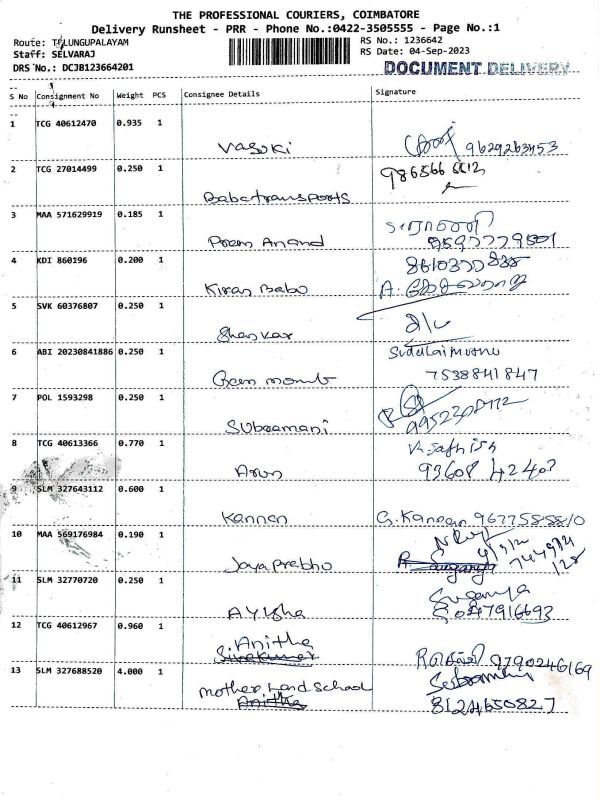 THE PROFESSIONAL COURIERS, COIMBATORE
Delivery Runsheet - PRR - Phone No.:0422-3505555 - Page No.:1
Route: TELUNGUPALAYAM
RS No.: 1236642
Staff: SELVARAJ
RS Date: 04-Sep-2023
DRS No.: DCJB123664201
DOCUMENT DELIVERY
S No Consignment No Weight PCS Consignee Details Signature
1 TCG 40612470 0.935 1
Vasuki 9629263453
2 TCG 27014499 0.250 1
Babatransports
3 MAA 571629919 0.185 1
Prem Anand
4 KDI 860196 0.200 1
Kiran Babu
5 SVK 60376807 0.250 1
Shankar
6 ABI 20230841886 0.250 1
7538841847
7 POL 1593298 0.250 1
Subramani
8 TCG 40613366 0.770 1
K. Sathish
Arun
9 SLM 327643112 0.600 1
Kannan G. Kannan 9677588810
10 MAA 569176984 0.190 1
Jaya Prabhu
11 SLM 32770720 0.250 1
Suganya
Ayisha 8047916693
12 TCG 40612967 0.960 1
Anitha
Sivakumar 9790246169
13 SLM 327688520 4.000 1
Mother Land School
Anitha 8124650827